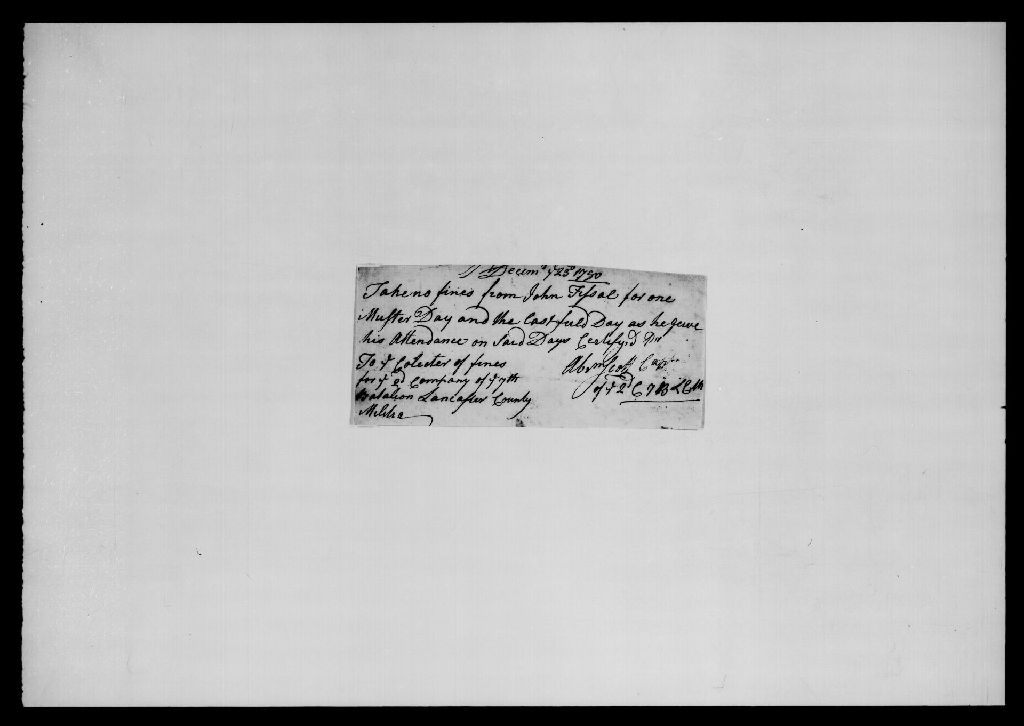 Decemr ye 23d 1790
Take no fines from John Fissal for one
Muster Day and the Last field Day as he Gave
his Attendance on Said Days Certifyd Pr
To ye Colecter of fines
for ye 2d Company of ye 7th
Batalion Lancaster County
Militia
Abrm Scott Capt
of ye 2d C 7 B L C M